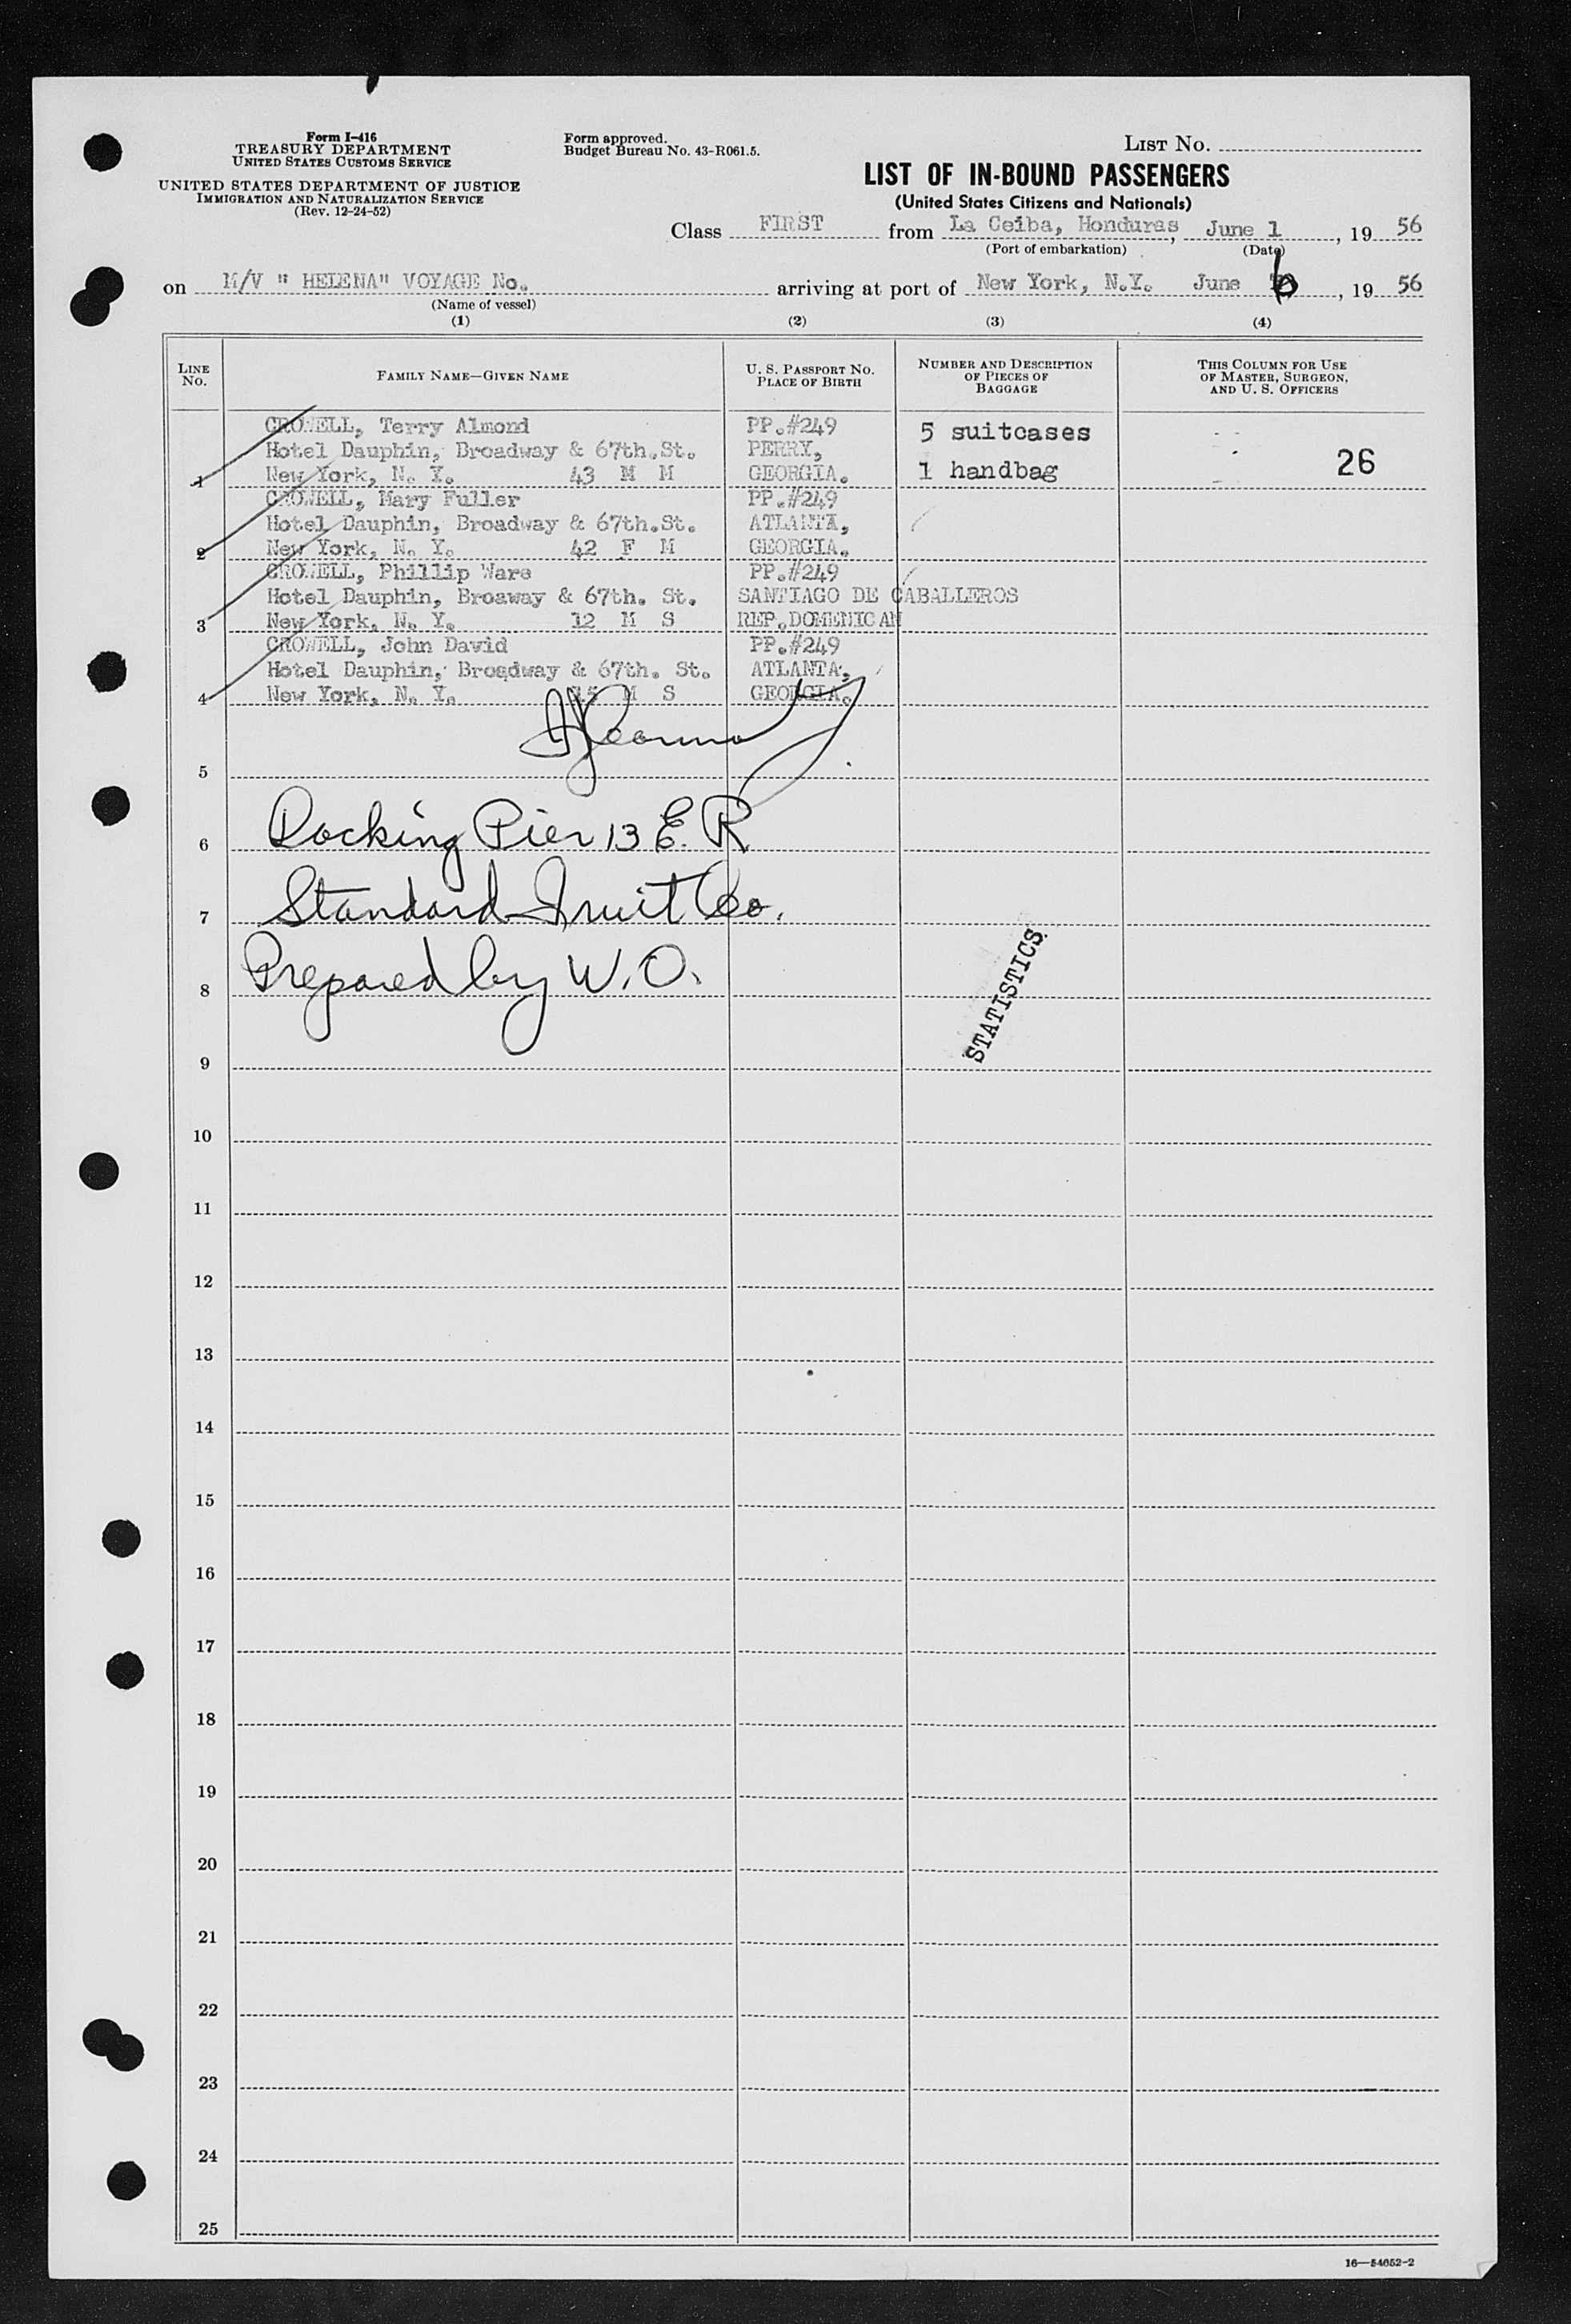 Form I-416
TREASURY DEPARTMENT
UNITED STATES CUSTOMS SERVICE
UNITED STATES DEPARTMENT OF JUSTICE
IMMIGRATION AND NATURALIZATION SERVICE
(Rev. 12-24-52)
Form approved.
Budget Bureau No. 43-R061.5.
LIST NO.
LIST OF IN-BOUND PASSENGERS
(United States Citizens and Nationals)
Class FIRST from La Ceiba, Honduras, June 1, 19 56
(Port of embarkation) (Date)
on M/V " HELENA" VOYAGE No. arriving at port of New York, N.Y. June 6, 19 56
(Name of vessel)
(1) (2) (3) (4)
LINE NO.
FAMILY NAME—GIVEN NAME
U. S. PASSPORT NO.
PLACE OF BIRTH
NUMBER AND DESCRIPTION
OF PIECES OF
BAGGAGE
THIS COLUMN FOR USE
OF MASTER, SURGEON,
AND U. S. OFFICERS
CROWELL, Terry Almond PP.#249 5 suitcases
Hotel Dauphin, Broadway & 67th.St. PERRY, 26
1 New York, N. Y. 43 M M GEORGIA. 1 handbag
CROWELL, Mary Fuller PP.#249
Hotel Dauphin, Broadway & 67th.St. ATLANTA,
2 New York, N. Y. 42 F M GEORGIA.
CROWELL, Phillip Ware PP.#249
Hotel Dauphin, Broaway & 67th. St. SANTIAGO DE CABALLEROS
3 New York, N. Y. 12 M S REP.DOMENICAN
CROWELL, John David PP.#249
Hotel Dauphin, Broadway & 67th. St. ATLANTA,
4 New York, N. Y. 15 M S GEORGIA.
5
6 Docking Pier 13 E. R
7 Standard Fruit Co.
8 Prepared by W. O.
STATISTICS.
9
10
11
12
13
14
15
16
17
18
19
20
21
22
23
24
25
16—54652-2